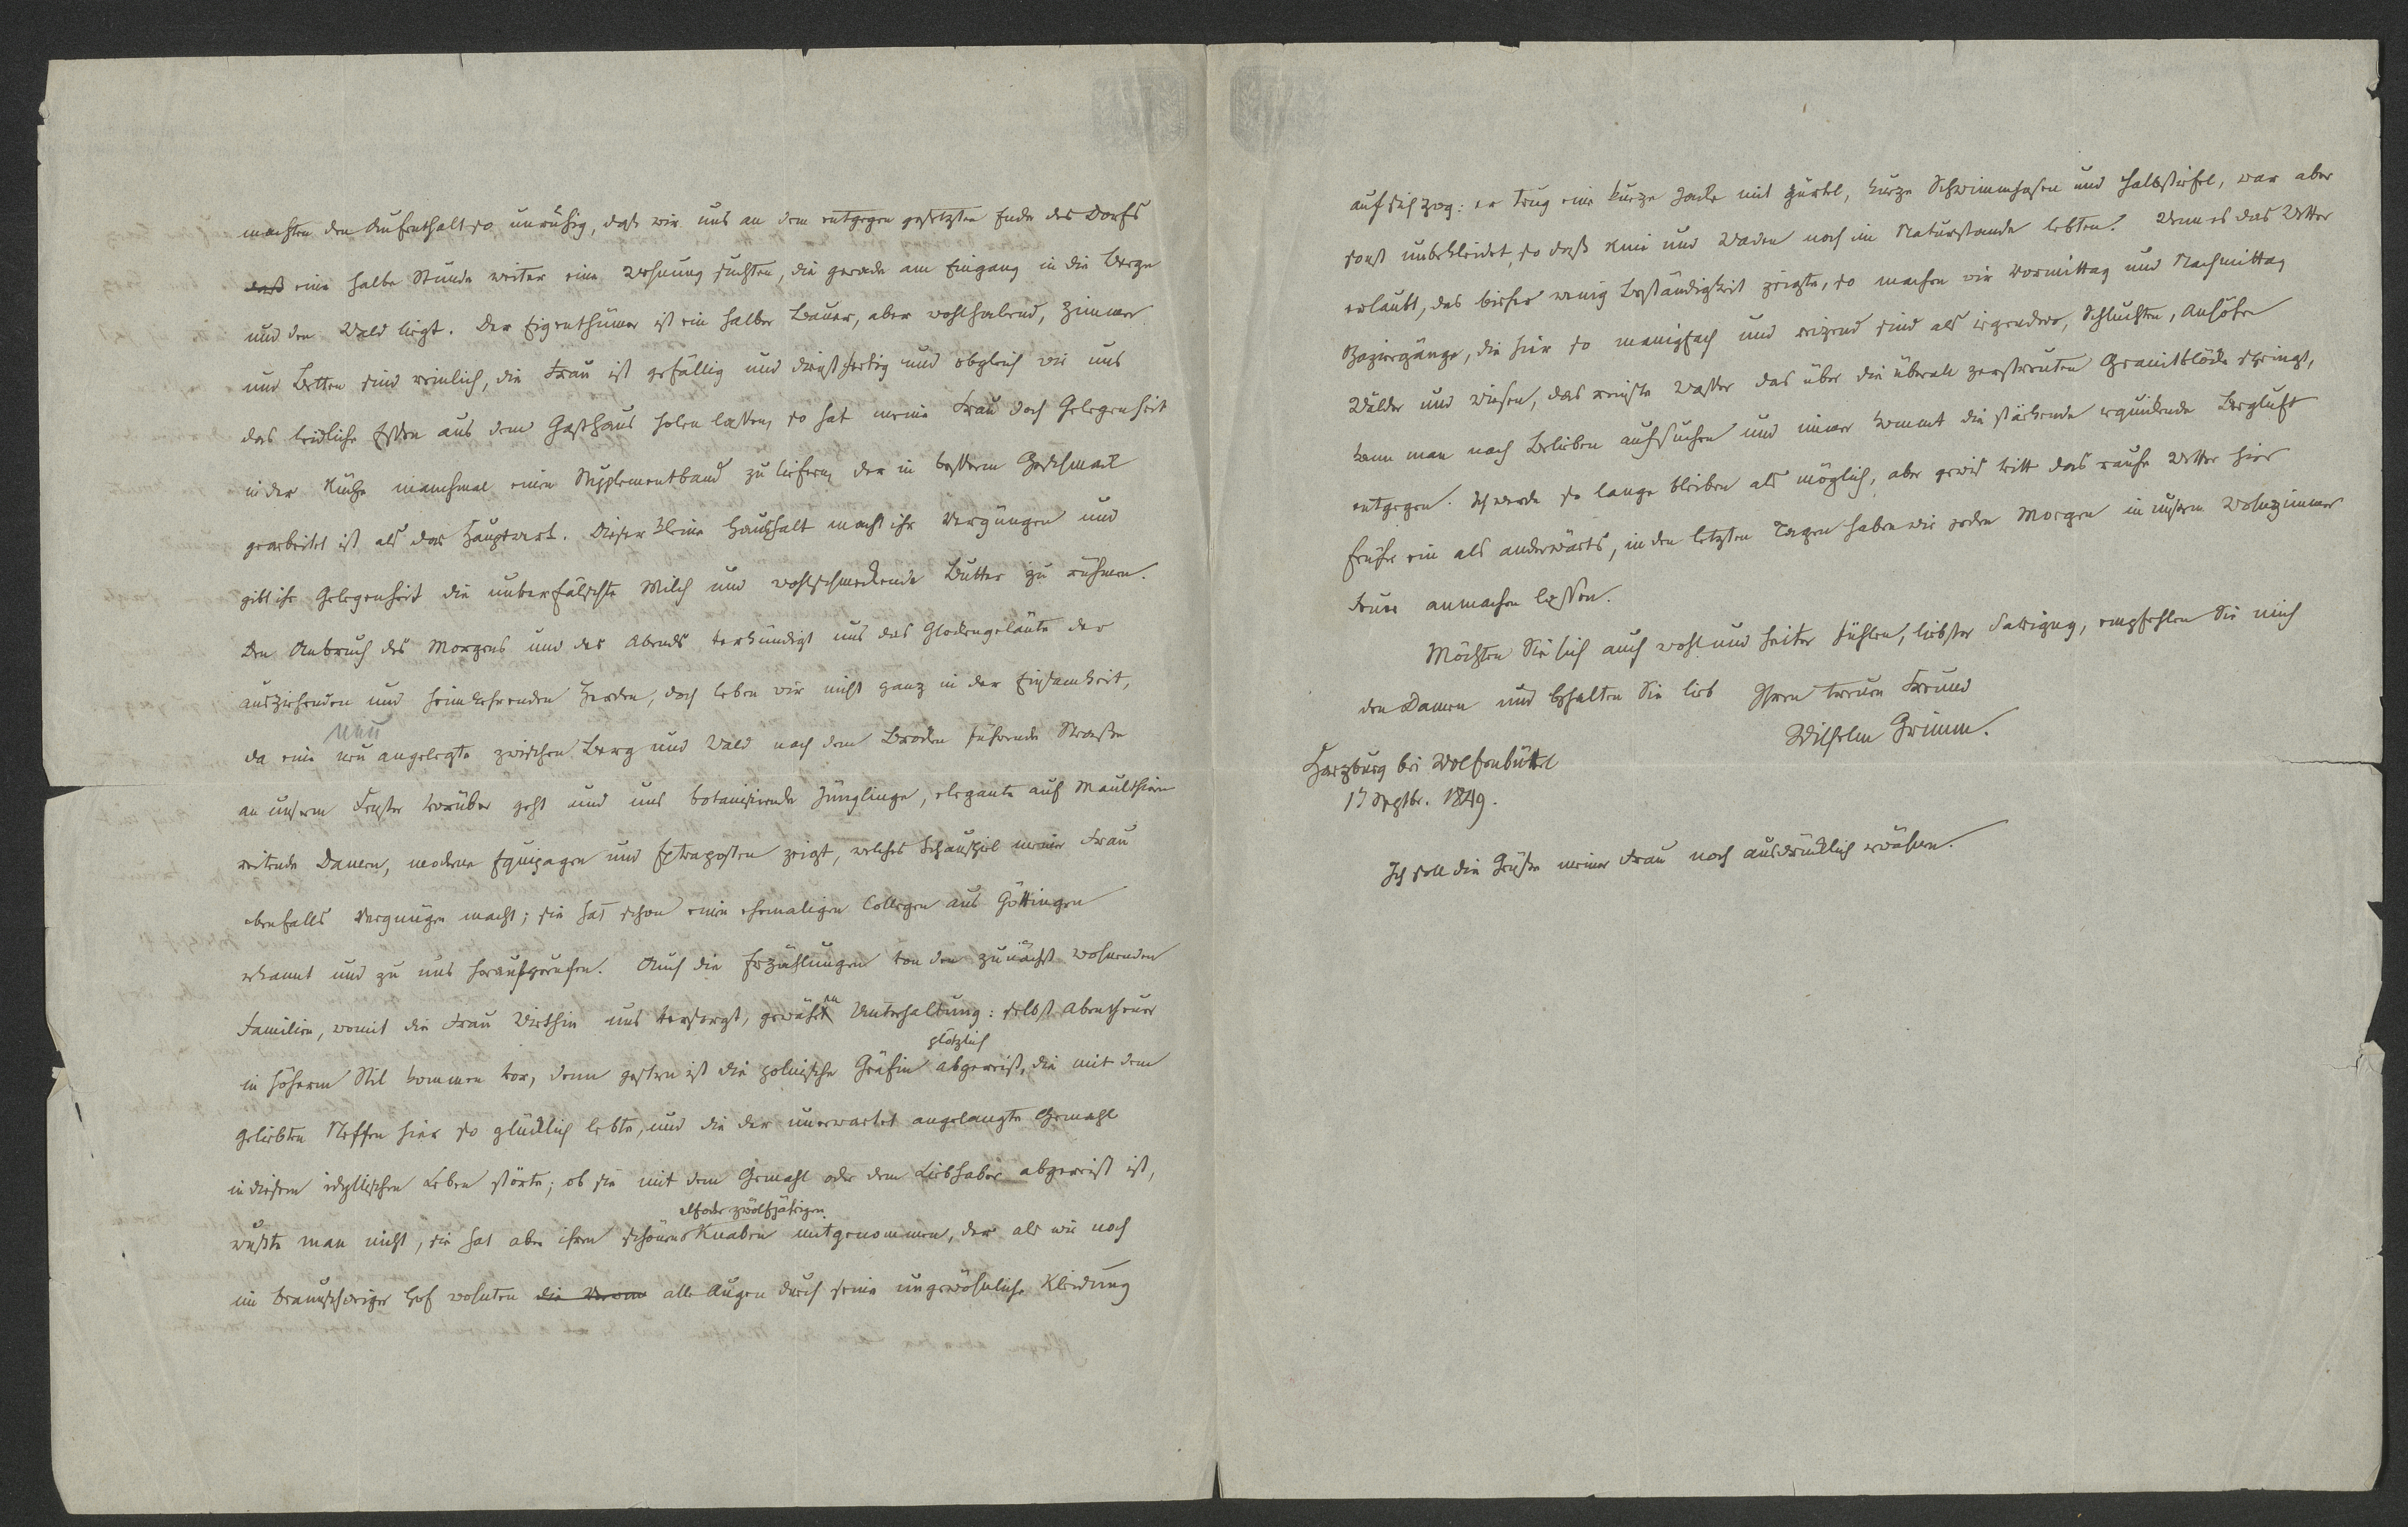 machten den Aufenthalt so unruhig, daß wir uns an dem entgegen gesetzten Ende des Dorfs
daß eine halbe Stunde weiter eine Wohnung suchten, die gerade am Eingang in die Berge
und den Wald liegt. Der Eigenthümer ist ein halber Bauer, aber wohlhabend, Zimmer
und Betten sind reinlich, die Frau ist gefällig und dienstfertig und obgleich wir uns
das leidliche Essen aus dem Gasthaus holen lassen, so hat meine Frau doch Gelegenheit
in der Küche manchmal einen Supplementband zu liefern, der in besserm Geschmack
gearbeitet ist als das Hauptwerk. Dieser kleine Haushalt macht ihr Vergnügen und
gibt ihr Gelegenheit die unverfälschte Milch und wohlschmeckende Butter zu rühmen.
Den Anbruch des Morgens und des Abends verkündigt uns das Glockengeläute der
ausziehenden und heimkehrenden Herden, doch leben wir nicht ganz in der Einsamkeit,
neu
da eine neu angelegte zwischen Berg und Wald nach dem Brocken führende Straße
an unserm Fenster vorüber geht und uns botanisirende Jünglinge, elegante auf Maulthieren
reitende Damen, moderne Equipagen und Extraposten zeigt, welches Schauspiel meiner Frau
ebenfalls Vergnügen macht; sie hat schon einen ehemaligen Collegen aus Göttingen
erkannt und zu uns heraufgerufen. Auch die Erzählungen von den zunächst wohnenden
Familien, womit die Frau Wirthin uns versorgt, gewähren Unterhaltung: selbst Abentheuer
plötzlich
in höherm Stil kommen vor, denn gestern ist die polnische Gräfin abgereist, die mit dem
geliebten Neffen hier so glücklich lebte, und die der unerwartet angelangte Gemahl
in diesem idyllischen Leben störte; ob sie mit dem Gemahl oder dem Liebhaber abgereist ist,
elf oder zwölfjährigen
wußte man nicht, sie hat aber ihren schönen Knaben mitgenommen, der als wir noch
im braunschweiger Hof wohnten die alle Augen durch seine ungewöhnliche Kleidung
auf sich zog: er trug eine kurze Jacke mit Gürtel, kurze Schwimmhosen und Halbstiefel, war aber
sonst unbekleidet, so daß Knie und Waden noch im Naturstande lebten. Wenn es das Wetter
erlaubt, das bisher wenig Beständigkeit zeigte, so machen wir Vormittag und Nachmittag
Spaziergänge, die hier so manigfach und reizend sind als irgendwo, Schluchten, Anhöhen
Wälder und Wiesen, das reinste Wasser das über die überall zerstreuten Granitblöcke springt,
kann man nach Belieben aufsuchen und immer kommt die stärkende erquickende Bergluft
entgegen. Ich werde so lange bleiben als möglich, aber gewis tritt das rauhe Wetter hier
früher ein als anderwärts, in den letzten Tagen haben wir jeden Morgen in unserm Wohnzimmer
Feuer anmachen lassen.
Möchten Sie sich auch wohl und heiter fühlen, liebster Savigny, empfehlen Sie mich
den Damen und behalten Sie lieb Ihren treuen Freund
Wilhelm Grimm.
Harzburg bei Wolfenbüttel
17 Septbr. 1849.
Ich soll die Grüße meiner Frau noch ausdrücklich erwähnen.